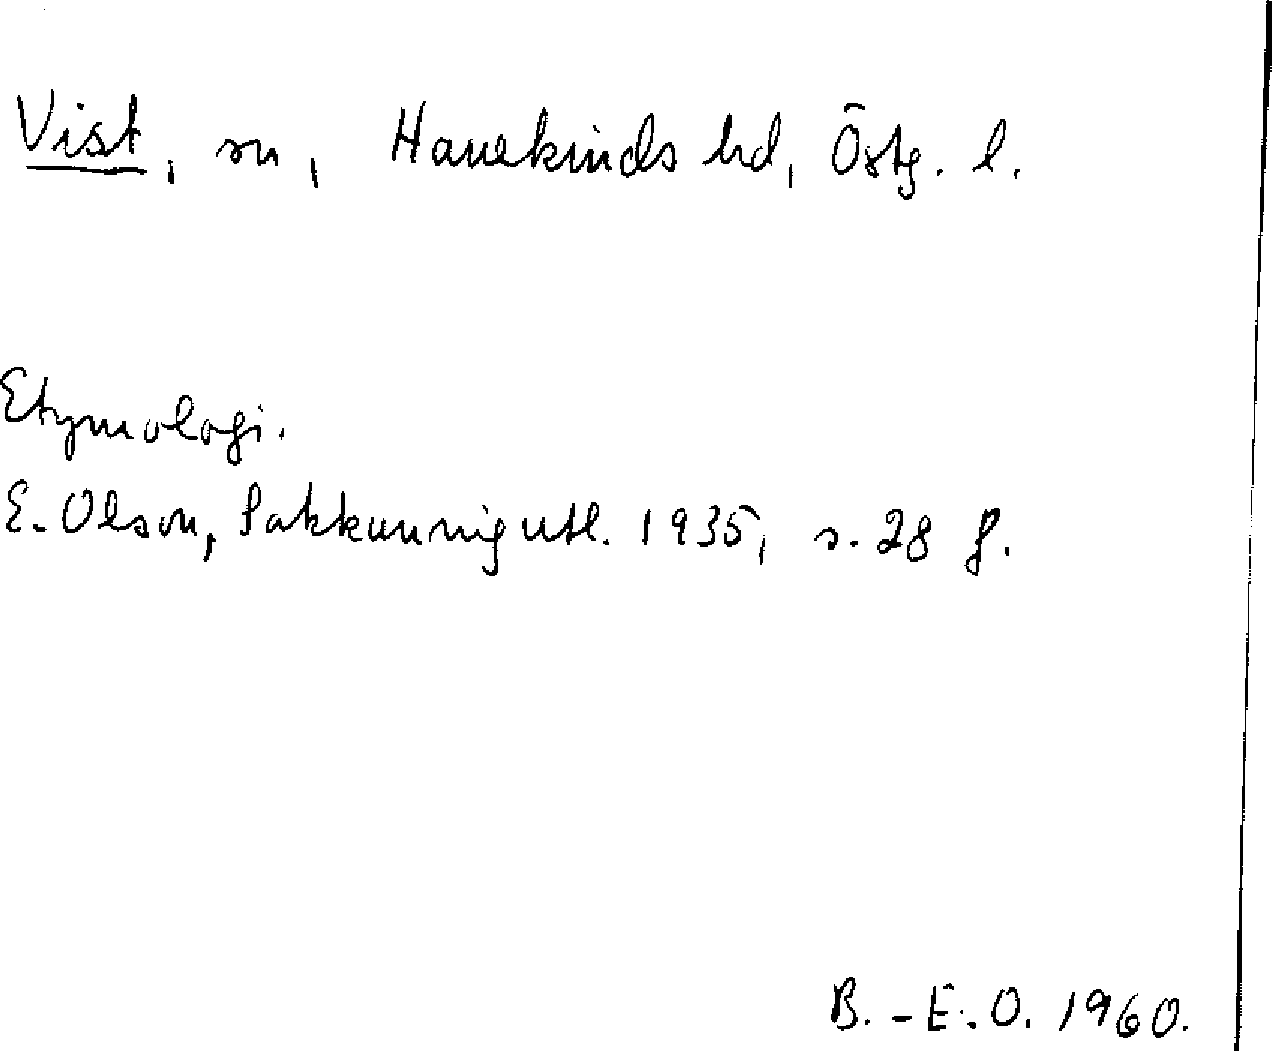 Vist, sn, Hanekinds hd, Östg. l.
Etymologi.
E. Olson, Sakkunnigutl. 1935, s. 28 f.
B.-E.O. 1960.